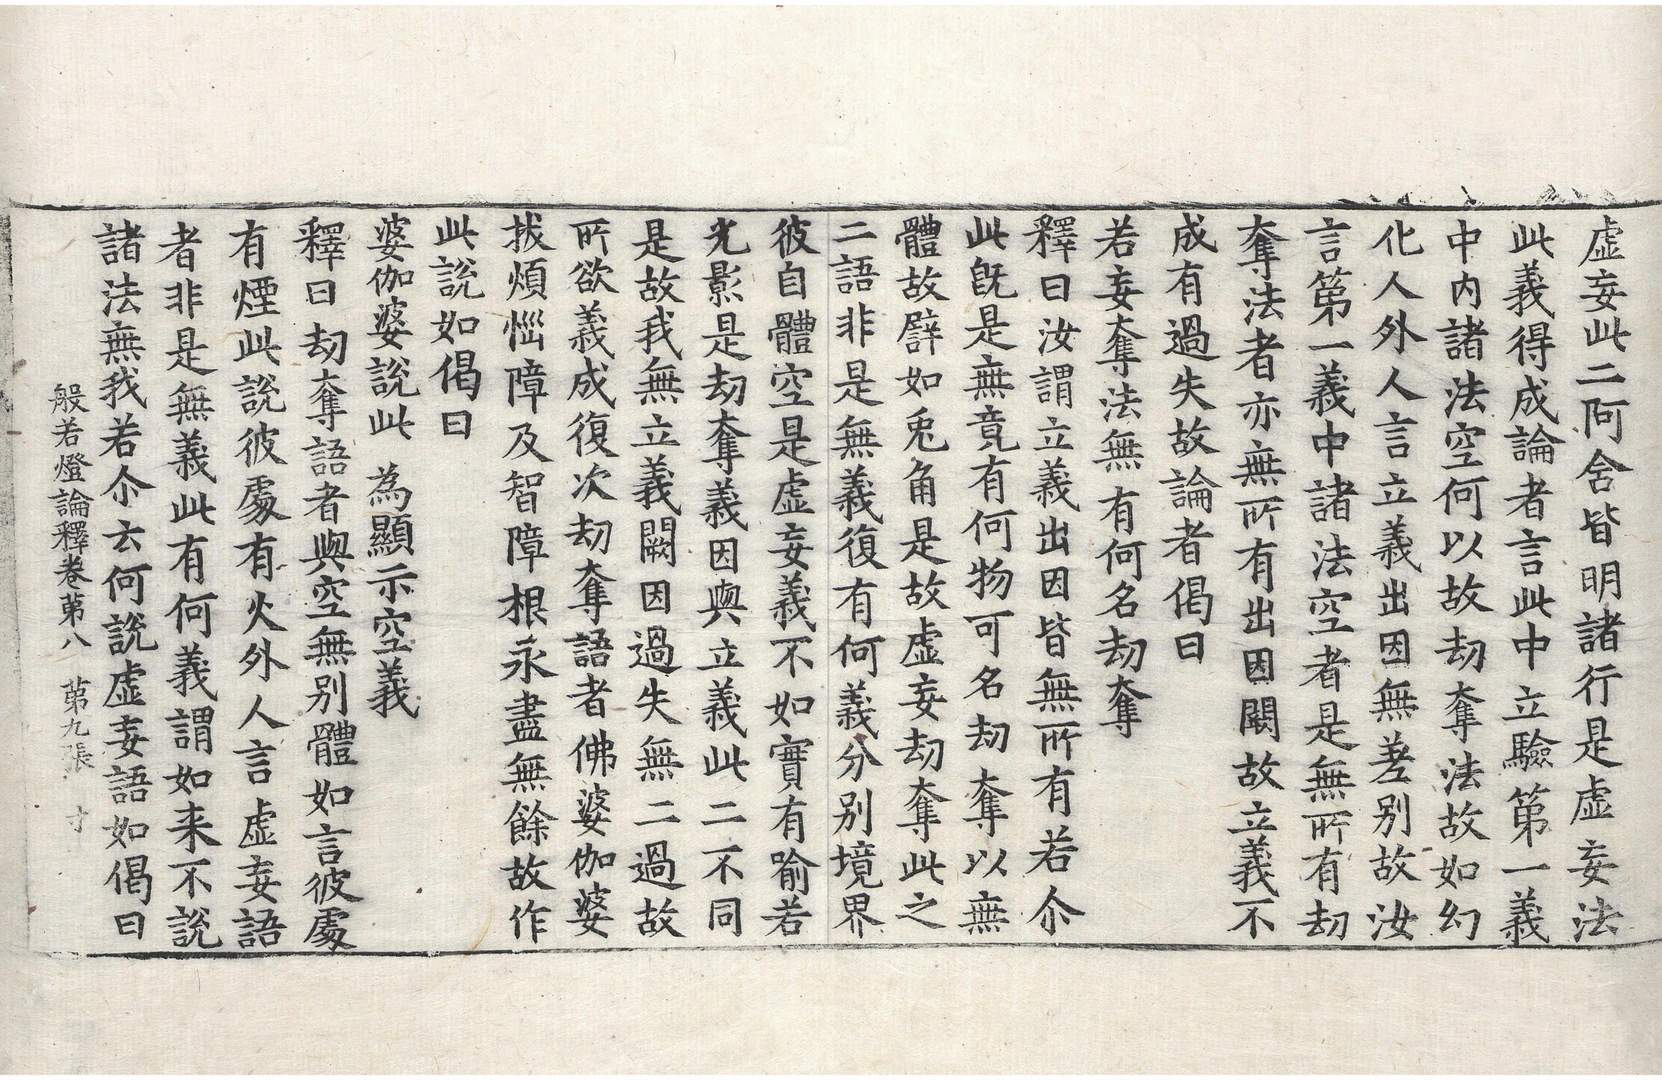 虛妄此二阿舍皆明諸行是虛妄法
此義得成論者言此中立驗第一義
中内諸法空何以故劫奪法故如幻
化人外人言立義出因無差别故汝
言第一義中諸法空者是無所有劫
奪法者亦無所有出因闕故立義不
成有過失故論者偈曰
若妄奪法無有何名劫奪
釋曰汝謂立義出因皆無所有若尒
此旣是無竟有何物可名劫奪以無
體故譬如兎角是故虛妄劫奪此之
二語非是無義復有何義分别境界
彼自體空是虛妄義不如實有喻若
光影是劫奪義因與立義此二不同
是故我無立義闕因過失無二過故
所欲義成復次劫奪語者佛婆伽婆
拔煩惱障及智障根永盡無餘故作
此說如偈曰
婆伽婆說此　為顯示空義
釋曰劫奪語者與空無别體如言彼處
有煙此說彼處有火外人言虛妄語
者非是無義此有何義謂如来不說
諸法無我若尒云何說虛妄語如偈曰
般若燈論釋卷第八　第九張　寸